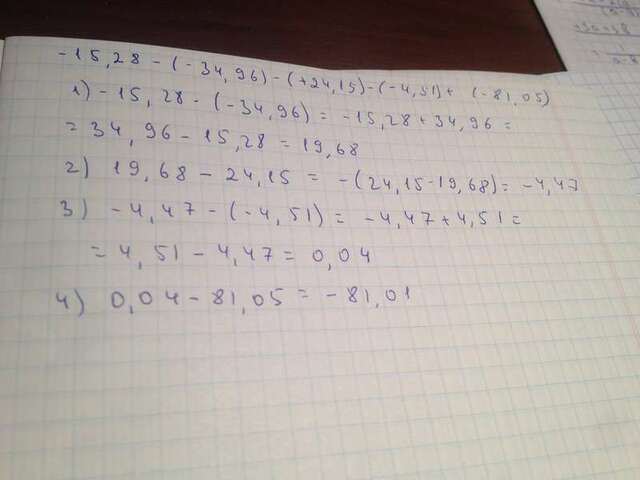 -15,28 - (-34,96) - (+24,15) - (-4,51) + (-81,05)
1) -15,28 - (-34,96) = -15,28 + 34,96 =
= 34,96 - 15,28 = 19,68
2) 19,68 - 24,15 = -(24,15-19,68) = -4,47
3) -4,47 - (-4,51) = -4,47 + 4,51 =
= 4,51 - 4,47 = 0,04
4) 0,04 - 81,05 = -81,01